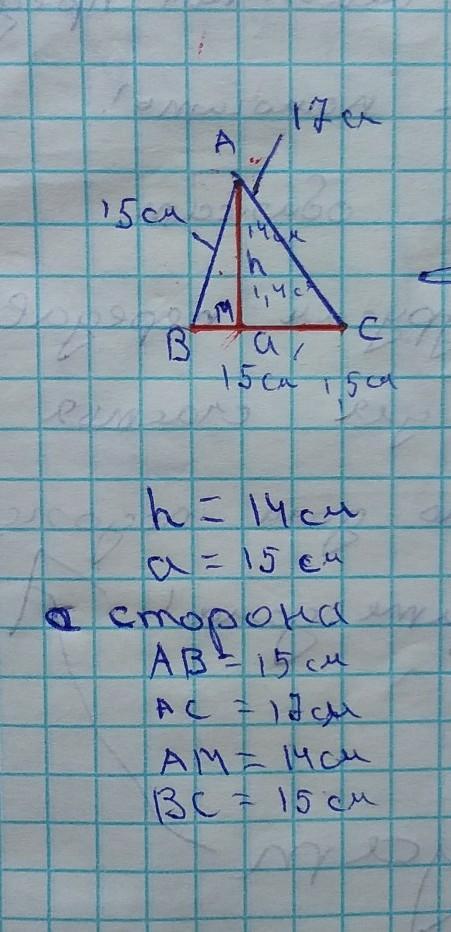 17 см
A
15 см
14 см
h
1,4 см
M
B
a,
C
15 см 1,5 см
h = 14 см
a = 15 см
a сторона
AB = 15 см
AC = 17 см
AM = 14 см
BC = 15 см